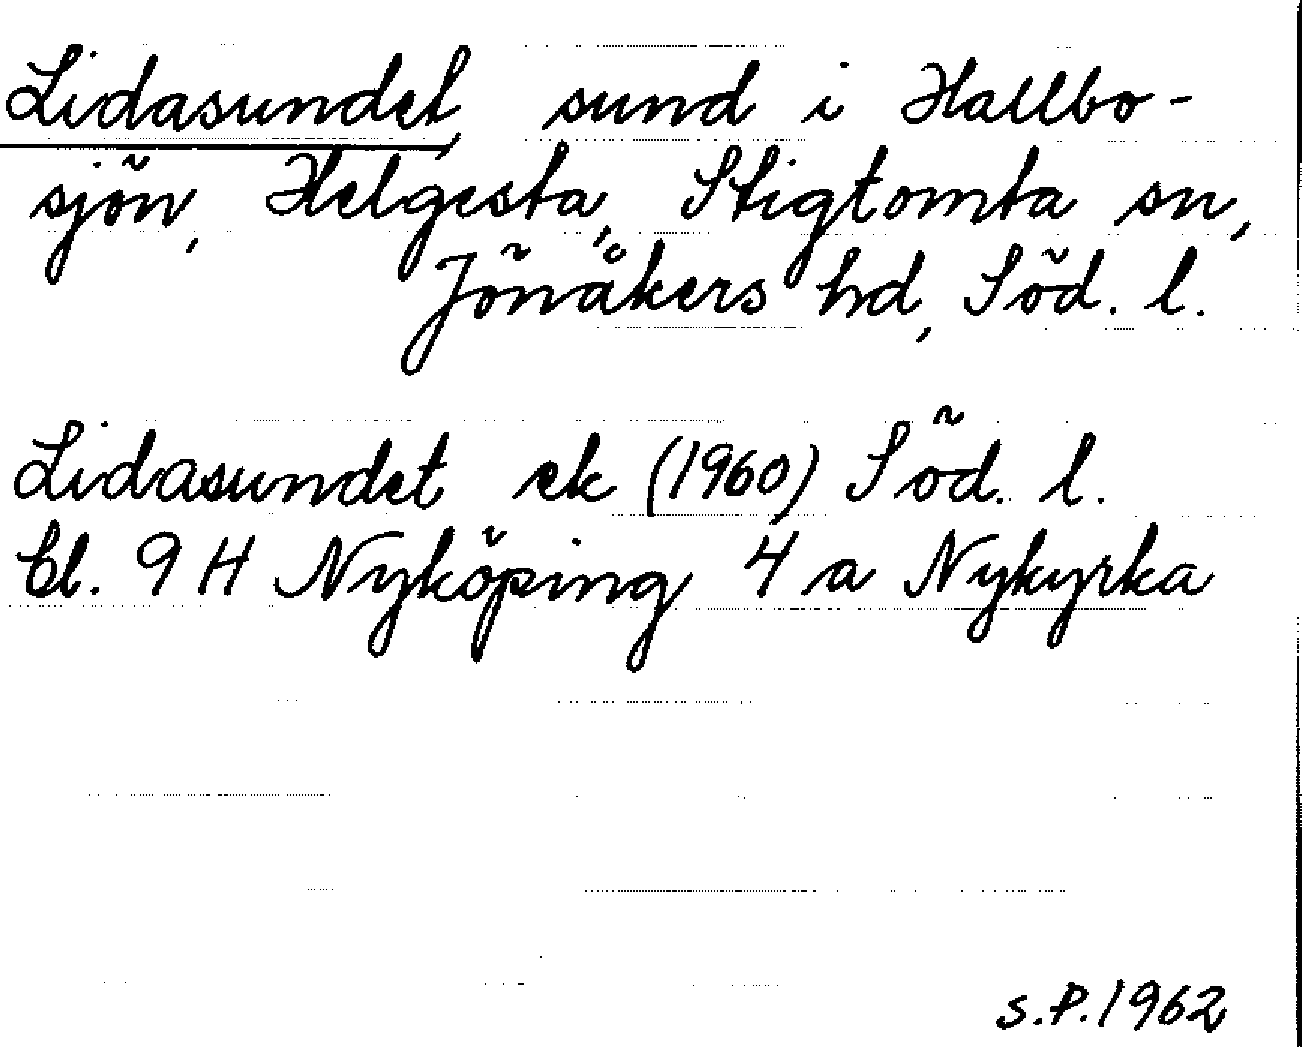 Lidasundet, sund i Hallbo-
sjön, Helgesta, Stigtomta sn,
Jönåkers hd, Söd. l.
Lidasundet ek (1960) Söd. l.
bl. 9 H Nyköping 4 a Nykyrka
S.P. 1962